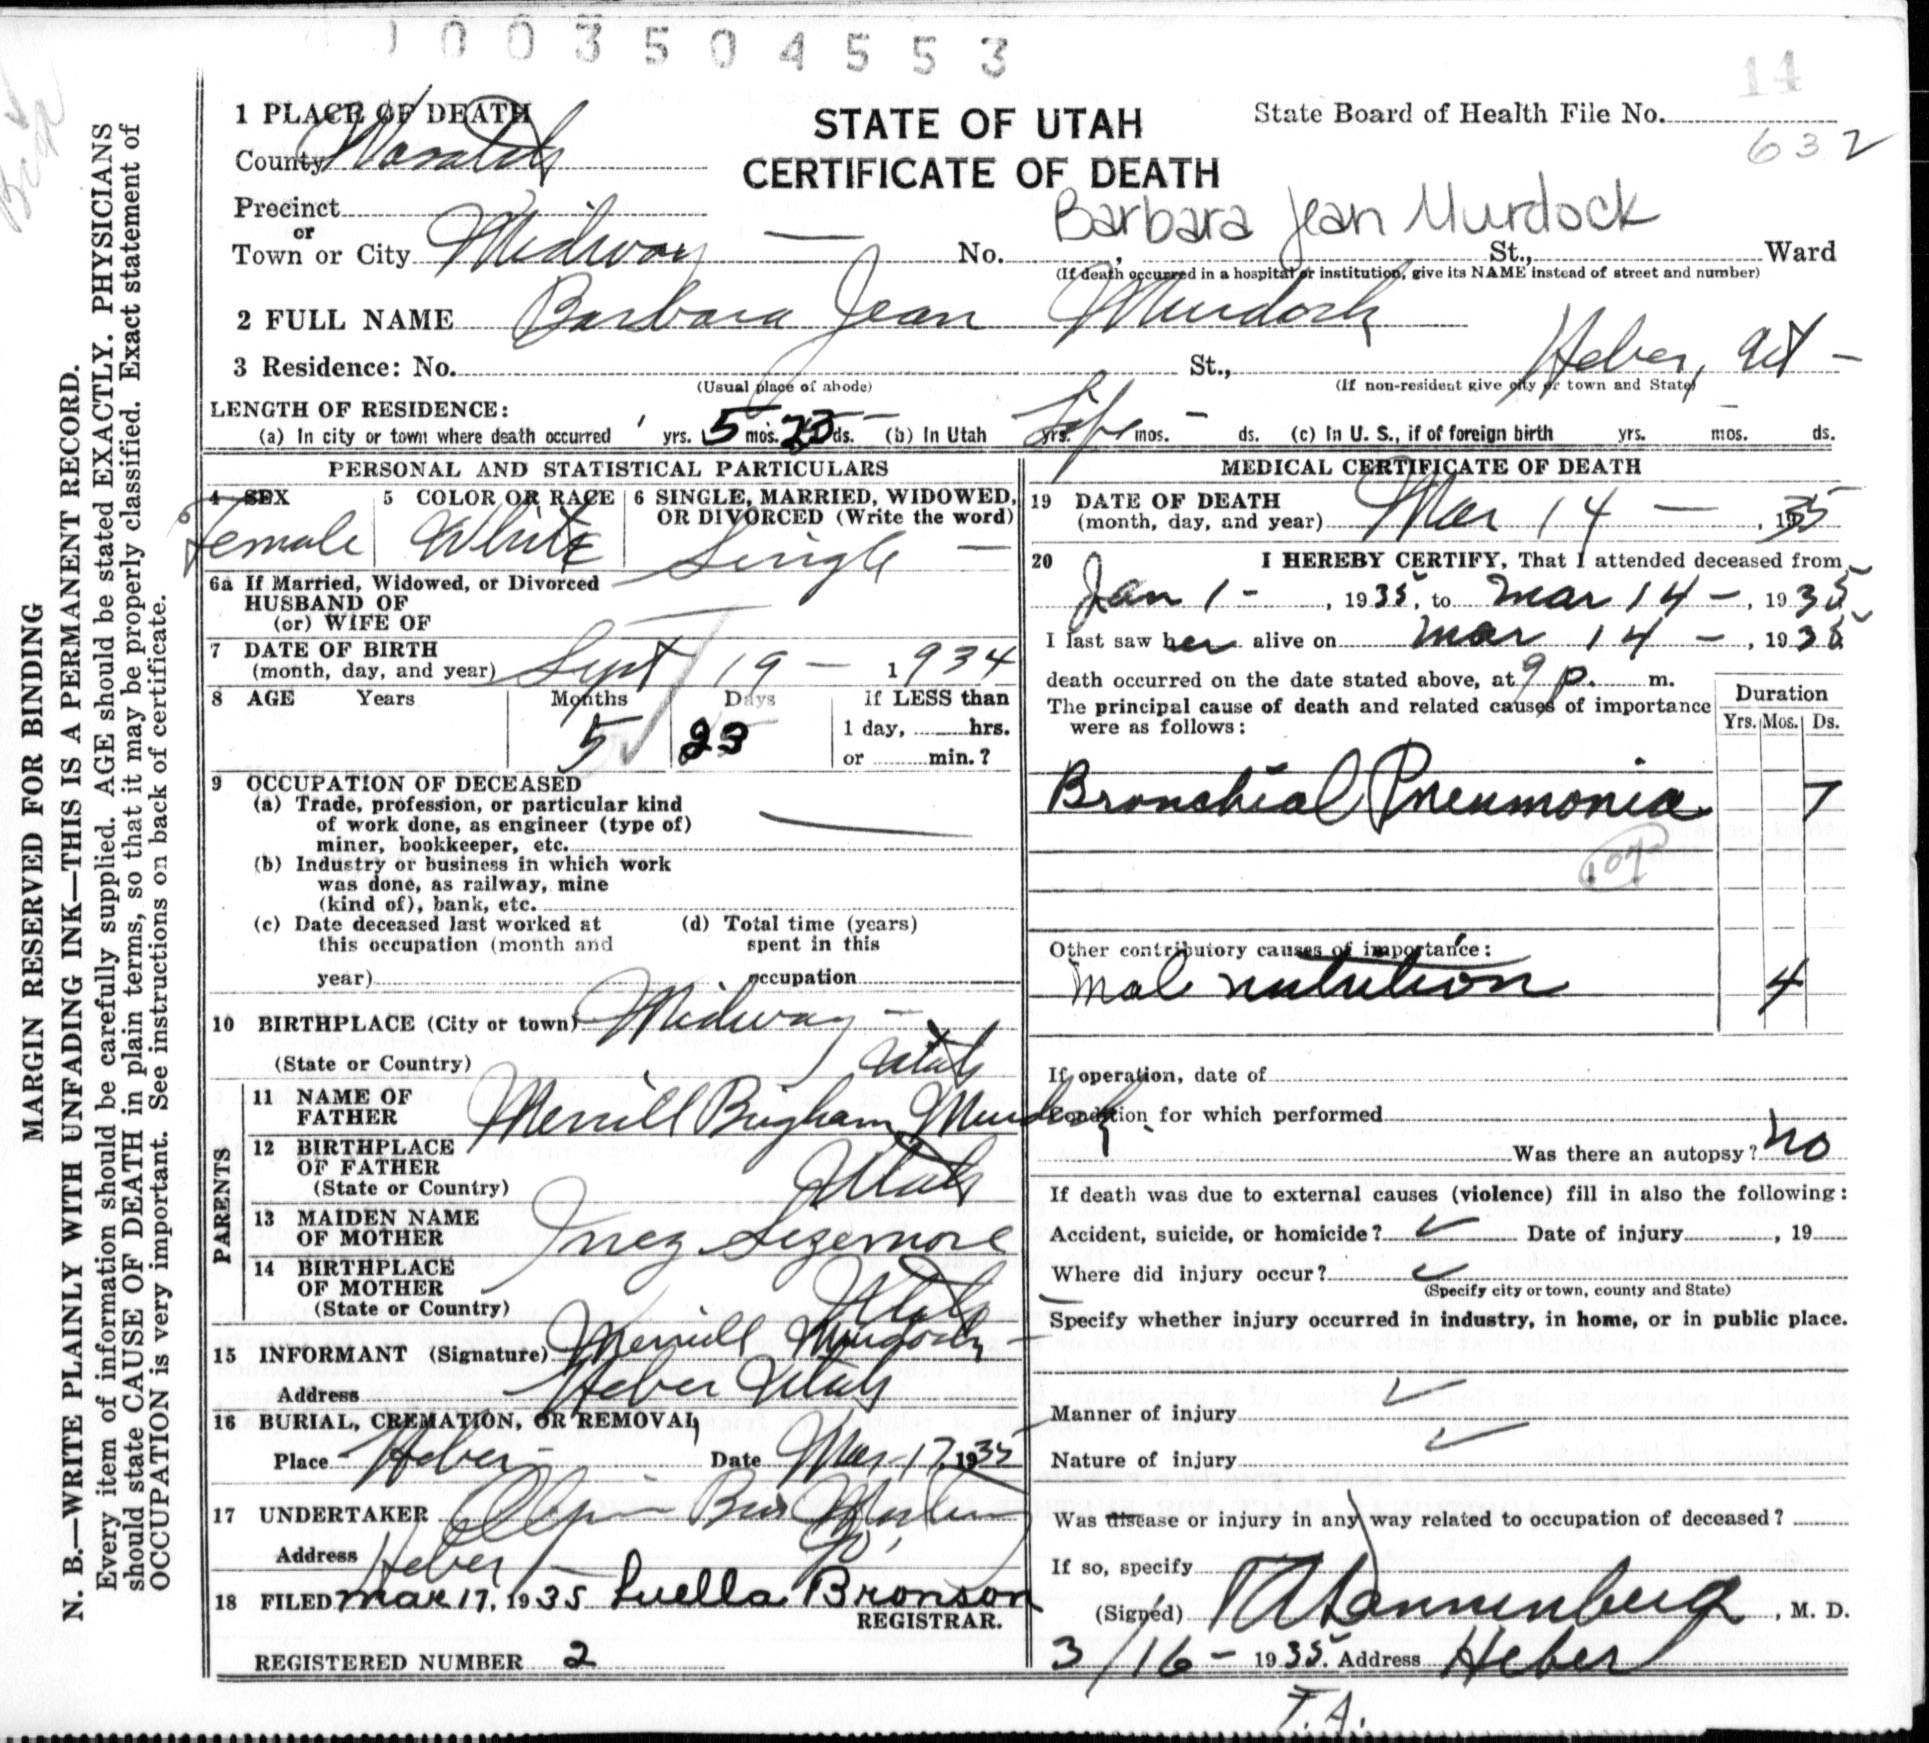 1003504553
14
1 PLACE OF DEATH
STATE OF UTAH
CERTIFICATE OF DEATH
State Board of Health File No.
632
County Wasatch
Precinct
or
Town or City Midway — No. , St., Ward
Barbara Jean Murdock
(If death occurred in a hospital or institution, give its NAME instead of street and number)
2 FULL NAME Barbara Jean Murdock
3 Residence: No. St., Heber, Ut —
(Usual place of abode) (If non-resident give city or town and State)
LENGTH OF RESIDENCE:
(a) In city or town where death occurred yrs. 5 mos. ds. (b) In Utah Life yrs. mos. ds. (c) In U. S., if of foreign birth yrs. mos. ds.
PERSONAL AND STATISTICAL PARTICULARS
4 SEX 5 COLOR OR RACE 6 SINGLE, MARRIED, WIDOWED, OR DIVORCED (Write the word)
Female White Single —
6a If Married, Widowed, or Divorced
HUSBAND OF
(or) WIFE OF
7 DATE OF BIRTH
(month, day, and year) Sept 19 — 1934
8 AGE Years Months Days If LESS than
5 23 1 day, hrs.
or min.?
9 OCCUPATION OF DECEASED
(a) Trade, profession, or particular kind
of work done, as engineer (type of)
miner, bookkeeper, etc.
(b) Industry or business in which work
was done, as railway, mine
(kind of), bank, etc.
(c) Date deceased last worked at (d) Total time (years)
this occupation (month and spent in this
year) occupation
10 BIRTHPLACE (City or town) Midway —
(State or Country) Utah
PARENTS
11 NAME OF
FATHER Merrill Brigham Murdock
12 BIRTHPLACE
OF FATHER
(State or Country) Utah
13 MAIDEN NAME
OF MOTHER Inez Sizemore
14 BIRTHPLACE
OF MOTHER
(State or Country) Utah
15 INFORMANT (Signature) Merrill Murdock
Address Heber Utah
16 BURIAL, CREMATION, OR REMOVAL
Place Heber Date Mar 17, 1935
17 UNDERTAKER Olpin Bros Co.
Address Heber
18 FILED Mar 17, 1935 Luella Bronson
REGISTRAR.
REGISTERED NUMBER 2
MEDICAL CERTIFICATE OF DEATH
19 DATE OF DEATH
(month, day, and year) Mar 14 — , 1935
20 I HEREBY CERTIFY, That I attended deceased from
Jan 1 - , 1935, to Mar 14 - , 1935
I last saw her alive on Mar 14 - , 1935
death occurred on the date stated above, at 9 p. m.
The principal cause of death and related causes of importance
were as follows:
Duration
Yrs. Mos. Ds.
Bronchial Pneumonia 7
107
Other contributory causes of importance:
Mal nutrition 4
If operation, date of
Condition for which performed
Was there an autopsy? no
If death was due to external causes (violence) fill in also the following:
Accident, suicide, or homicide? Date of injury , 19
Where did injury occur?
(Specify city or town, county and State)
Specify whether injury occurred in industry, in home, or in public place.
Manner of injury
Nature of injury
Was disease or injury in any way related to occupation of deceased?
If so, specify
(Signed) TA Dannenberg, M. D.
3/16 - 1935. Address Heber
T.A.
MARGIN RESERVED FOR BINDING
N. B.—WRITE PLAINLY WITH UNFADING INK—THIS IS A PERMANENT RECORD.
Every item of information should be carefully supplied. AGE should be stated EXACTLY. PHYSICIANS
should state CAUSE OF DEATH in plain terms, so that it may be properly classified. Exact statement of
OCCUPATION is very important. See instructions on back of certificate.